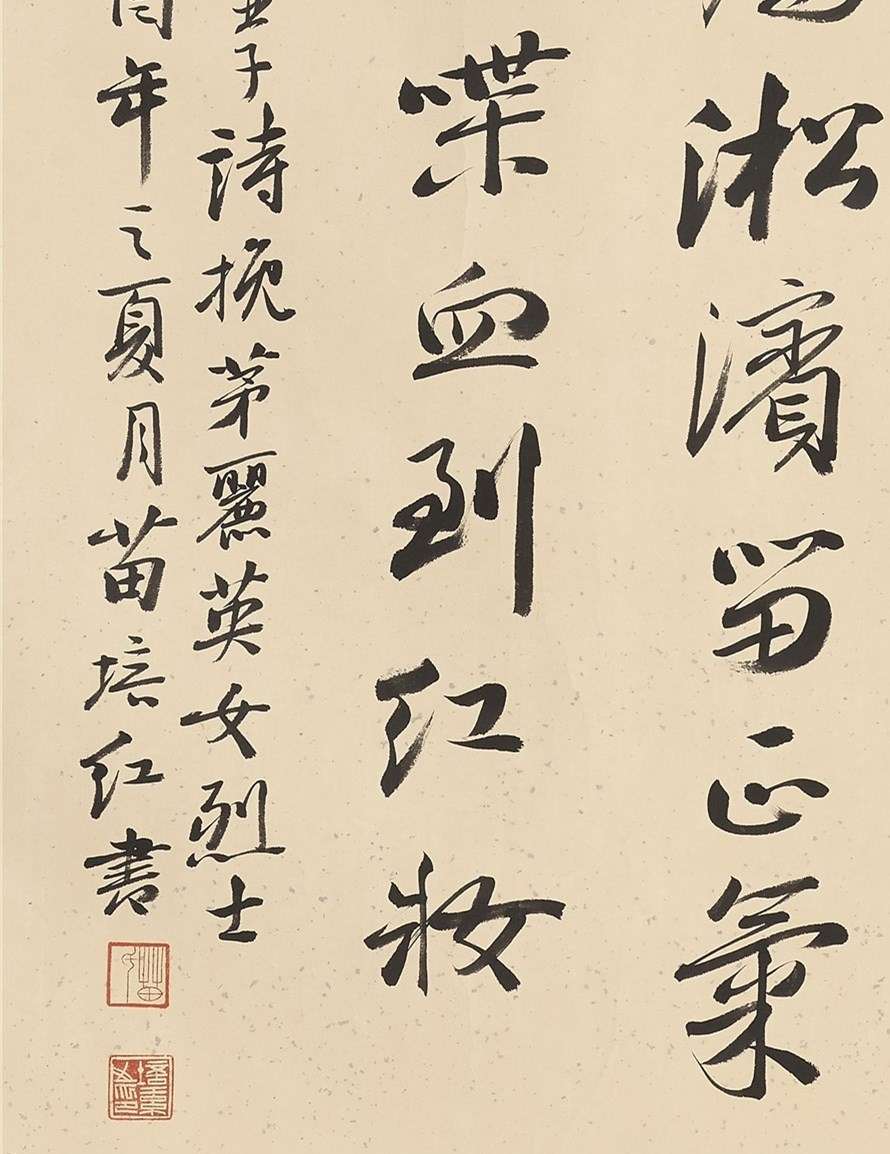 淞濱留正氣
喋血到红妝
亞子詩挽茅麗英女烈士
酉年之夏月苗培红書
苗氏